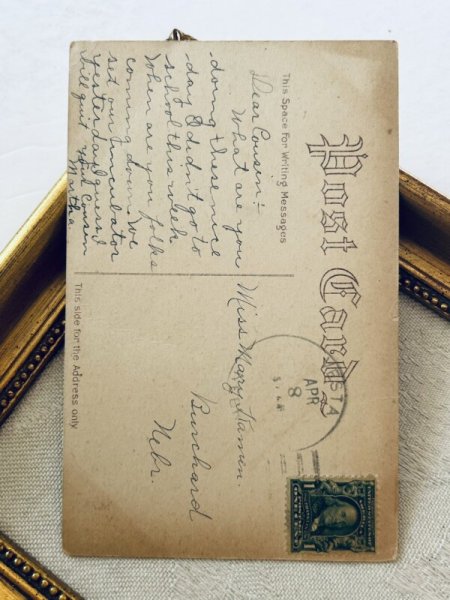 Post Card
This Space For Writing Messages
Dear Cousin:-
What are you
doing these nice
day I didn't go to
school this week
When are you folks
coming down. We
set our Incubator
yesterday. I guess I
will quit. Your Cousin
Martha
This side for the Address only
Miss Mary
Burchard
Nebr.
STA
APR
8
ONE CENT